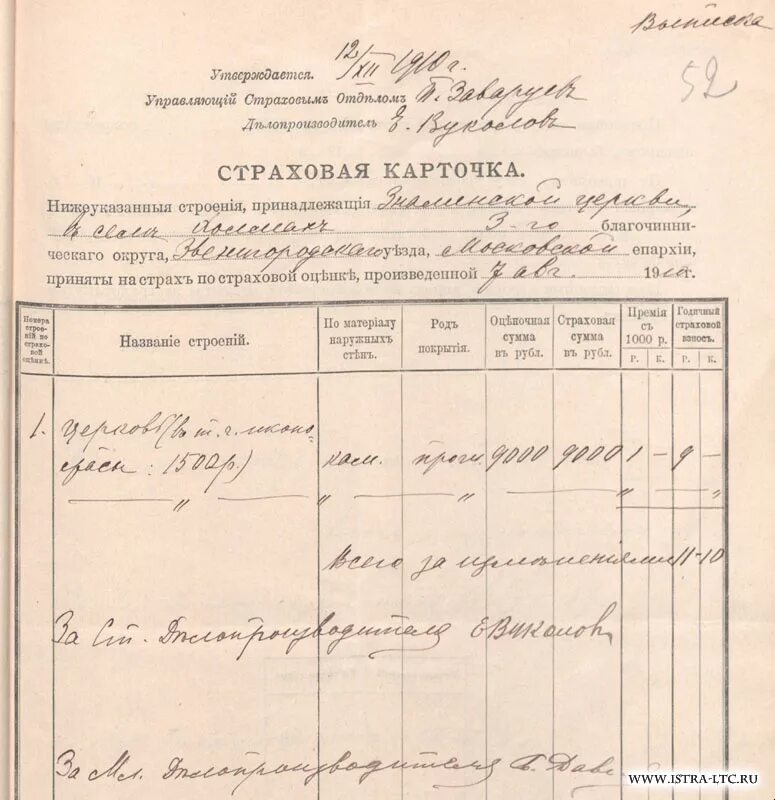 Выписка
12/XII 1910 г.
52
Утверждается.
Управляющій Страховымъ Отдѣломъ П. Заваруевъ
Дѣлопроизводитель Е. Вуколовъ
СТРАХОВАЯ КАРТОЧКА.
Нижеуказанныя строенія, принадлежащія Знаменской церкви
въ селѣ Холмахъ 3-го благочинни-
ческаго округа, Звенигородскаго уѣзда, Московской епархіи,
приняты на страхъ по страховой оцѣнкѣ, произведенной 7 авг. 1910 г.
Номера строе-ній по страхо-вой оцѣнкѣ.
Названіе строеній.
По матеріалу наружныхъ стѣнъ.
Родъ покрытія.
Оцѣночная сумма въ рубл.
Страховая сумма въ рубл.
Премія съ 1000 р.
Годичный страховой взносъ.
Р. К. Р. К.
1. Церковь (въ т. ч. иконо-
стасы: 1500 р.) кам. 9000 9000 1 — 9 —
Всего за измѣненіями 11-10
За Ст. Дѣлопроизводителя Е Вуколовъ
За Мл. Дѣлопроизводителя
WWW.ISTRA-LTC.RU